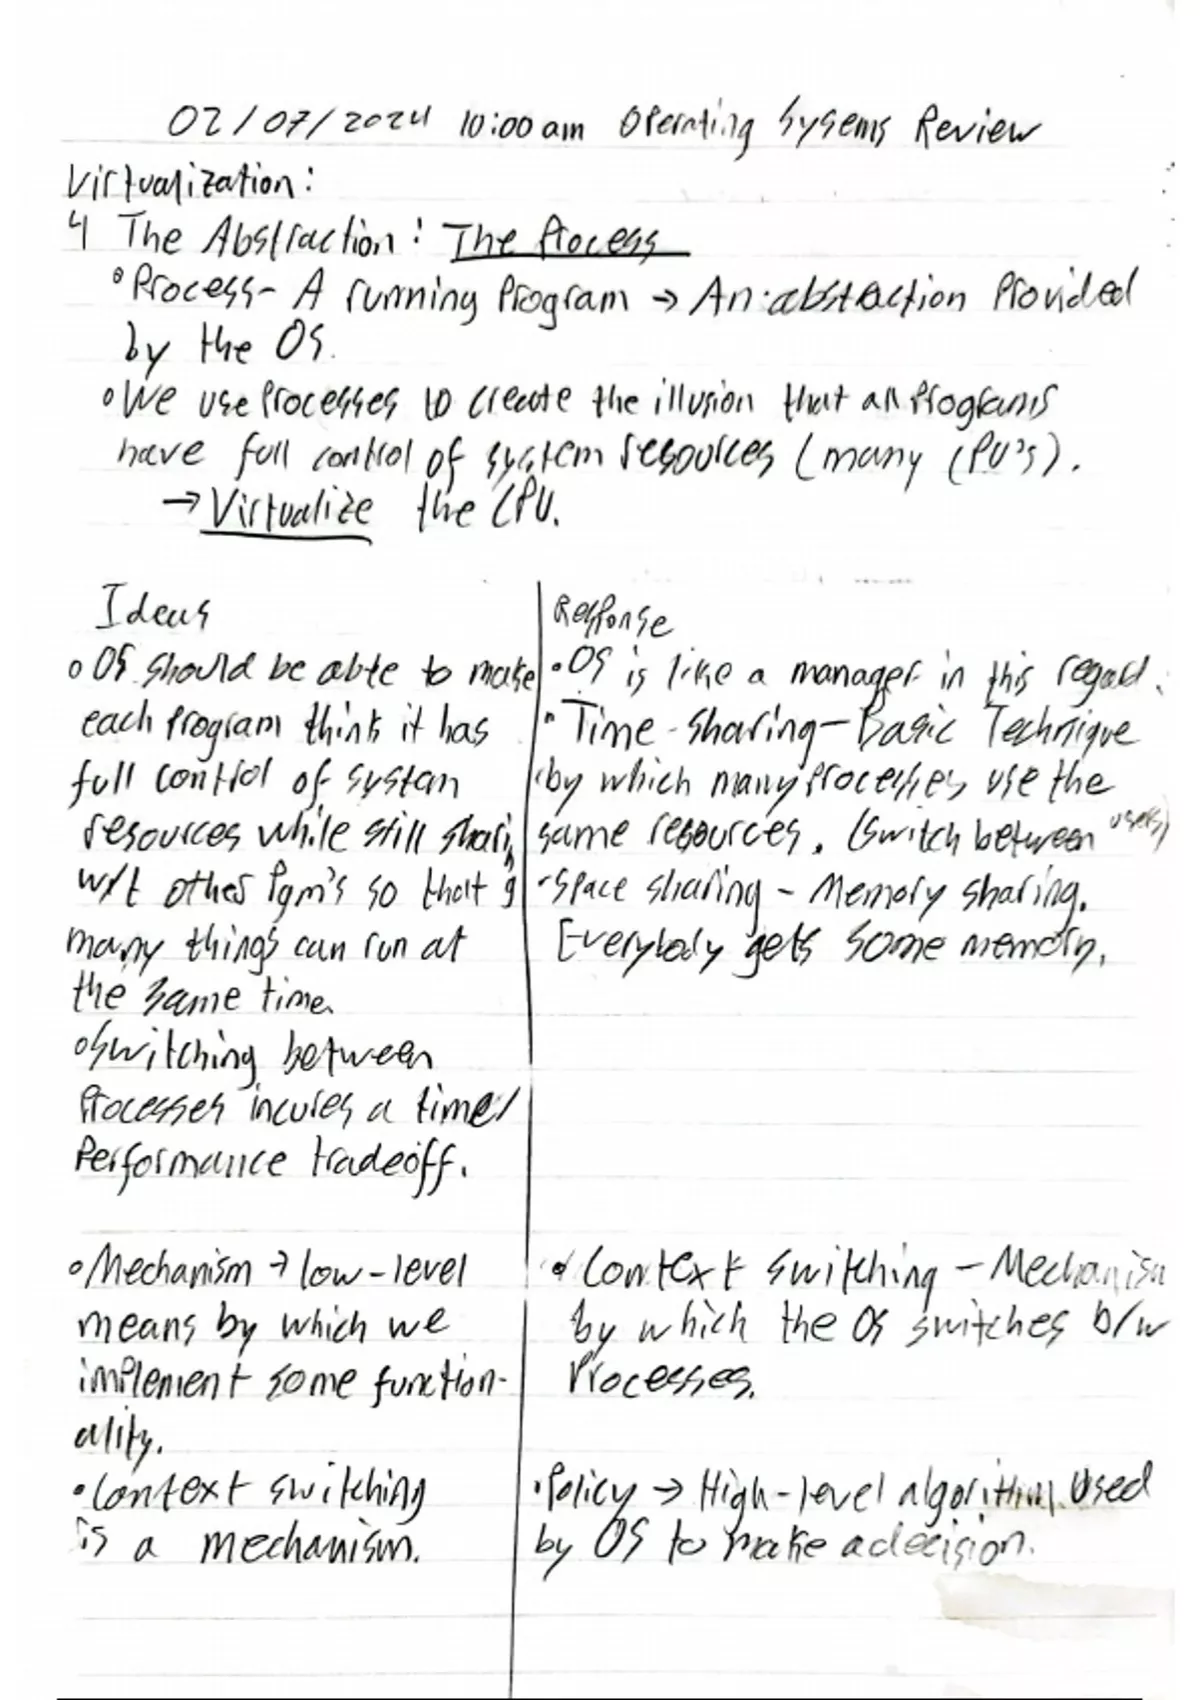 02/07/2024 10:00am Operating Sysems Review
Virtualization:
4 The Abstraction: The Process
° Process - A running Program → An abstraction Provided
by the OS.
° We use Processes to create the illusion that all Programs
have full control of system resources (many CPU's).
→ Virtualize the CPU.
Ideas
° OS should be able to make
each Program think it has
full control of system
resources while still sharing
w/t other Pgm's so that
many things can run at
the same time.
° Switching between
Processes incures a time/
Performance tradeoff.
° Mechanism → low-level
means by which we
implement some function-
ality.
• Context switching
is a mechanism.
Response
• OS is like a manager in this regard.
• Time-sharing - Basic Technique
by which many Processes use the
same resources. (Switch between users)
• Space sharing - Memory sharing.
Everybody gets some memory.
• Context switching - Mechanism
by which the OS switches b/w
Processes.
• Policy → High-level algorithm Used
by OS to make a decision.